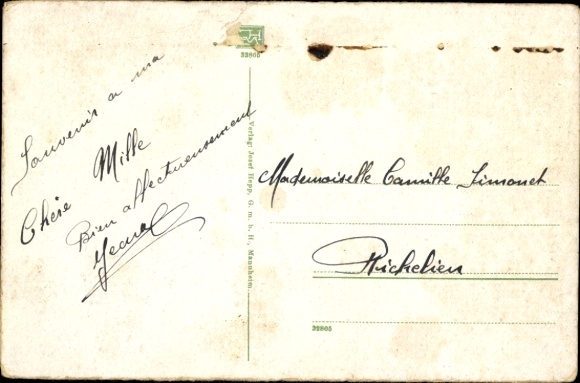 Souvenir a ma
Chère Mille
Bien affectueusement
32865
Verlag: Josef Hepp, G. m. b. H., Mannheim.
Mademoiselle Camille Simonet
Richelieu
32865